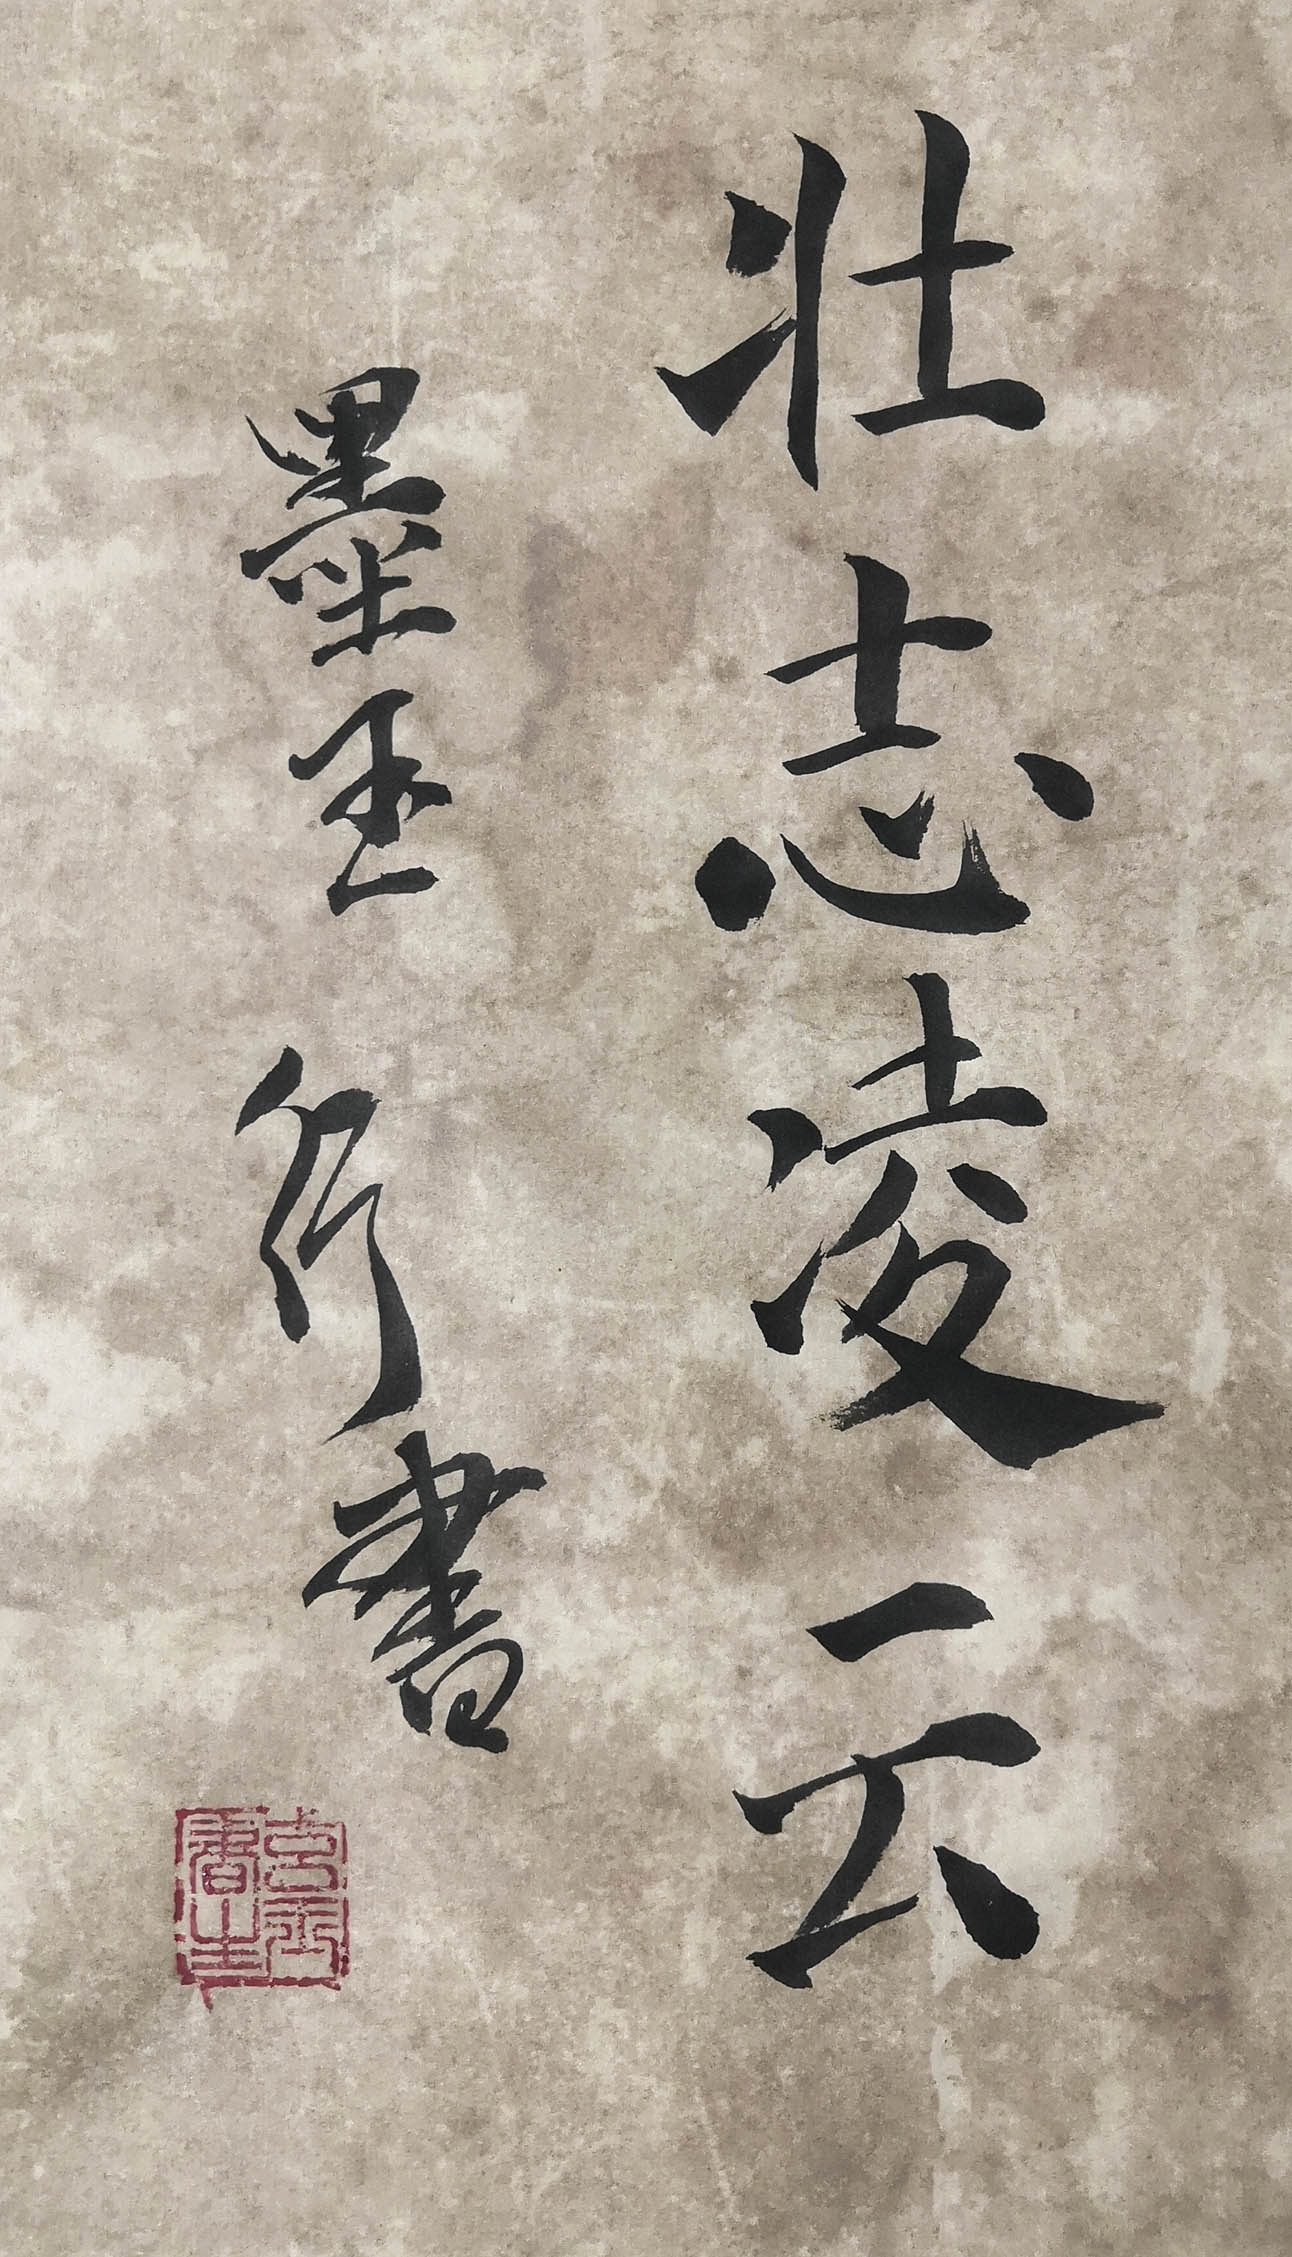 壮志凌云
墨玉行書